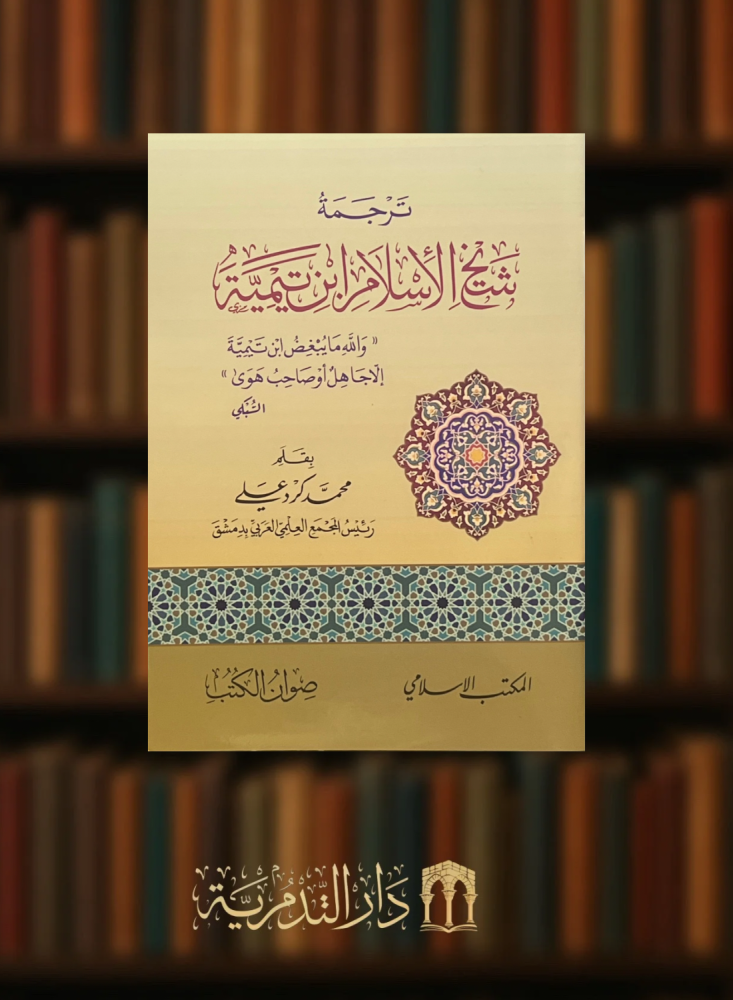 تَرْجَمَةُ
شَيْخِ الْإِسْلَامِ ابْنِ تَيْمِيَّةَ
« وَاللهِ مَا يُبْغِضُ ابْنَ تَيْمِيَّةَ
إِلَّا جَاهِلٌ أَوْ صَاحِبُ هَوَىً »
السُّبْكِي
بِقَلَمِ
مُحَمَّد كُرْد عَلِي
رَئِيسُ المَجْمَعِ العِلْمِيّ العَرَبِيّ بِدِمَشْقَ
المكتب الإسلامي
صِوَانُ الكُتُبِ
دَارُ التَّدْمُرِيَّة